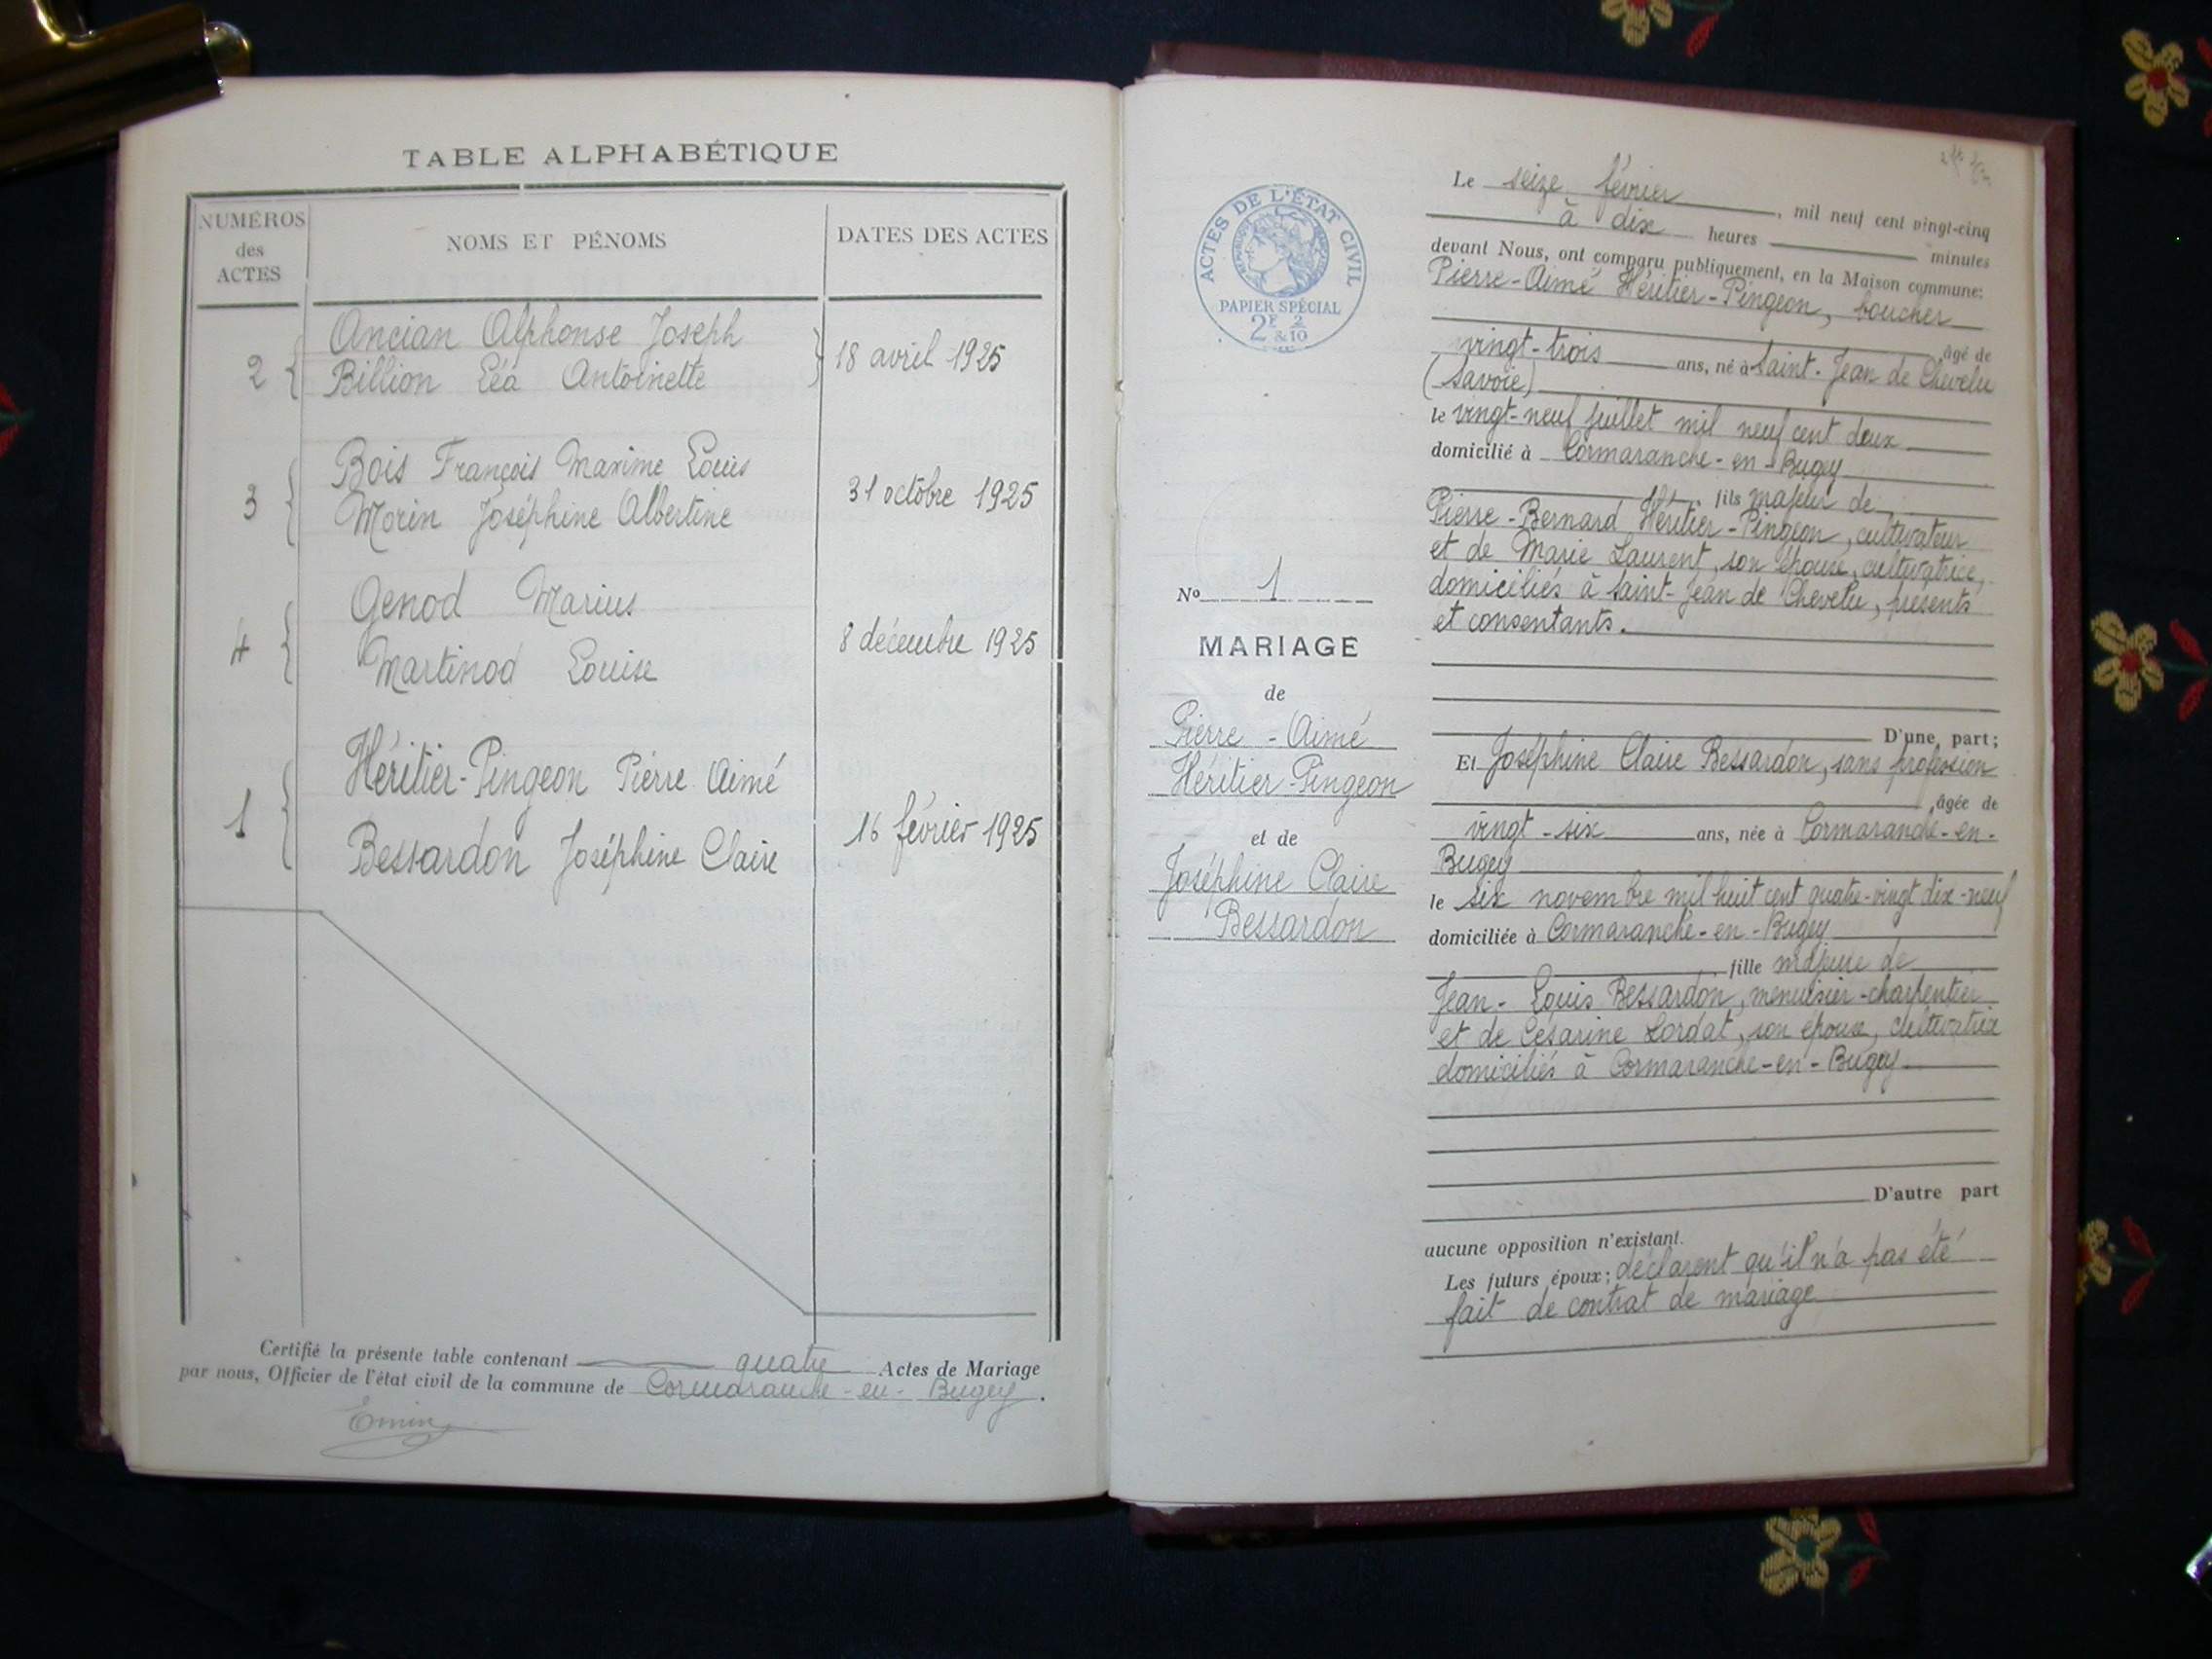 TABLE ALPHABÉTIQUE
NUMÉROS
des
ACTES
NOMS ET PÉNOMS
DATES DES ACTES
2 { Ancian Alphonse Joseph
Billion Léa Antoinette } 18 avril 1925
3 { Bois François Maxime Louis
Morin Joséphine Albertine
31 octobre 1925
4 { Genod Marius
Martinod Louise
8 décembre 1925
1 { Héritier-Pingeon Pierre Aimé
Bessardon Joséphine Claire
16 février 1925
Certifié la présente table contenant quatre Actes de Mariage
par nous, Officier de l'état civil de la commune de Cormaranche-en-Bugey.
Emin
ACTES DE L'ÉTAT CIVIL
PAPIER SPÉCIAL
2F 2
& 10
No 1
MARIAGE
de
Pierre-Aimé
Héritier-Pingeon
et de
Joséphine Claire
Bessardon
Le seize février, mil neuf cent vingt-cinq
à dix heures minutes
devant Nous, ont comparu publiquement, en la Maison commune:
Pierre-Aimé Héritier-Pingeon, boucher
, âgé de
vingt-trois ans, né à Saint-Jean de Chevelu
(Savoie)
le vingt-neuf juillet mil neuf cent deux
domicilié à Cormaranche-en-Bugey
, fils majeur de
Pierre-Bernard Héritier-Pingeon, cultivateur
et de Marie Laurent, son épouse, cultivatrice,
domiciliés à Saint-Jean de Chevelu, présents
et consentants.
D'une part;
Et Joséphine Claire Bessardon, sans profession
, âgée de
vingt-six ans, née à Cormaranche-en-
Bugey
le six novembre mil huit cent quatre-vingt dix-neuf
domiciliée à Cormaranche-en-Bugey
, fille majeure de
Jean-Louis Bessardon, menuisier-charpentier
et de Césarine Lordat, son épouse, cultivatrice
domiciliés à Cormaranche-en-Bugey
D'autre part
aucune opposition n'existant.
Les futurs époux; déclarent qu'il n'a pas été
fait de contrat de mariage